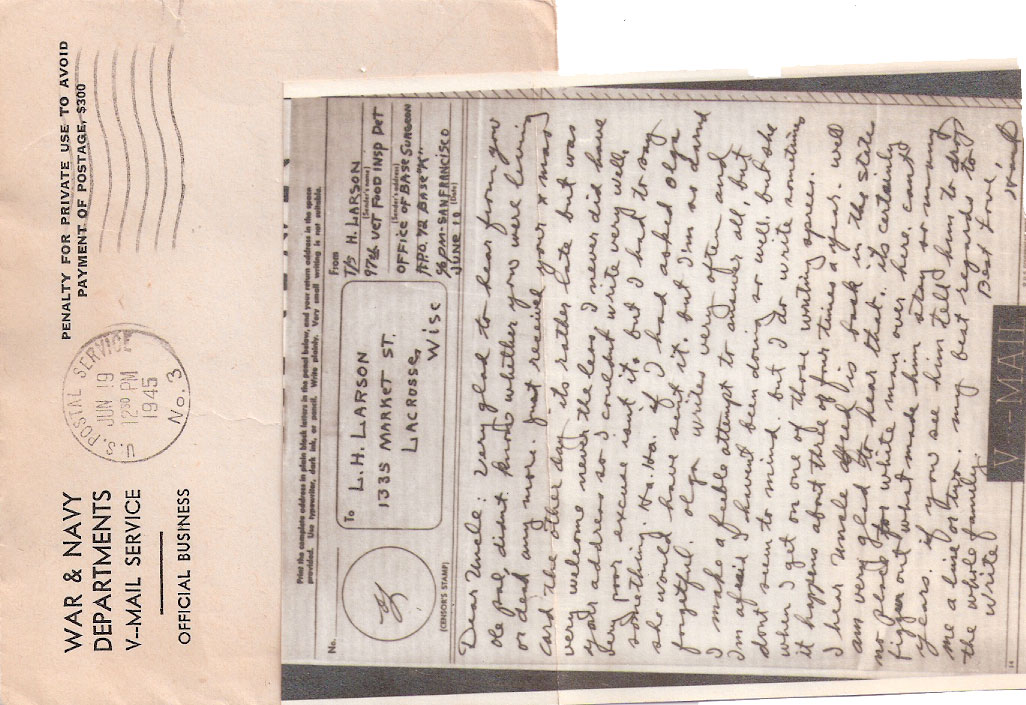 WAR & NAVY
DEPARTMENTS
V--MAIL SERVICE
OFFICIAL BUSINESS
U.S. POSTAL SERVICE
JUN 19
12 30 PM
1945
No. 3
PENALTY FOR PRIVATE USE TO AVOID
PAYMENT OF POSTAGE, $300
Print the complete address in plain block letters in the panel below, and your return address in the space
provided. Use typewriter, dark ink, or pencil. Write plainly. Very small writing is not suitable.
No.
(CENSOR'S STAMP)
To
L. H. LARSON
1335 MARKET ST.
LACROSSE,
WISC
From
T/5 H. LARSON
(Sender's name)
97th VET FOOD INSP DET
(Sender's address)
OFFICE OF BASE SURGEON
A.P.O. 72 BASE "K"
% PM - SAN FRANCISCO
JUNE 10
(Date)
Dear Uncle: Very glad to hear from you
ole pal, didnt know whether you were living
or dead any more. Just received your x mas
card the other day. its rather late but was
very welcome never the less. I never did have
your address so I couldnt write very well.
Very poor excuse isnt it, but I had to say
something. Ha. Ha. If I had asked Olga
she would have sent it. but I'm so darnd
forgetful. Olga writes very often and
I make a feeble attempt to answer all, but
I'm afraid I havent been doing so well, but she
dont seem to mind. but I do write sometimes
when I get on one of those writing sprees. well
it happens about three of four times a year.
I hear Uncle is back in the states
am very glad to hear that. its certainly
no place for white man over here. cant
figger out what made him stay so many
years. if you see him tell him to drop
me a line or two. my best regards to
the whole family.
Best Love,
Write
V - MAIL